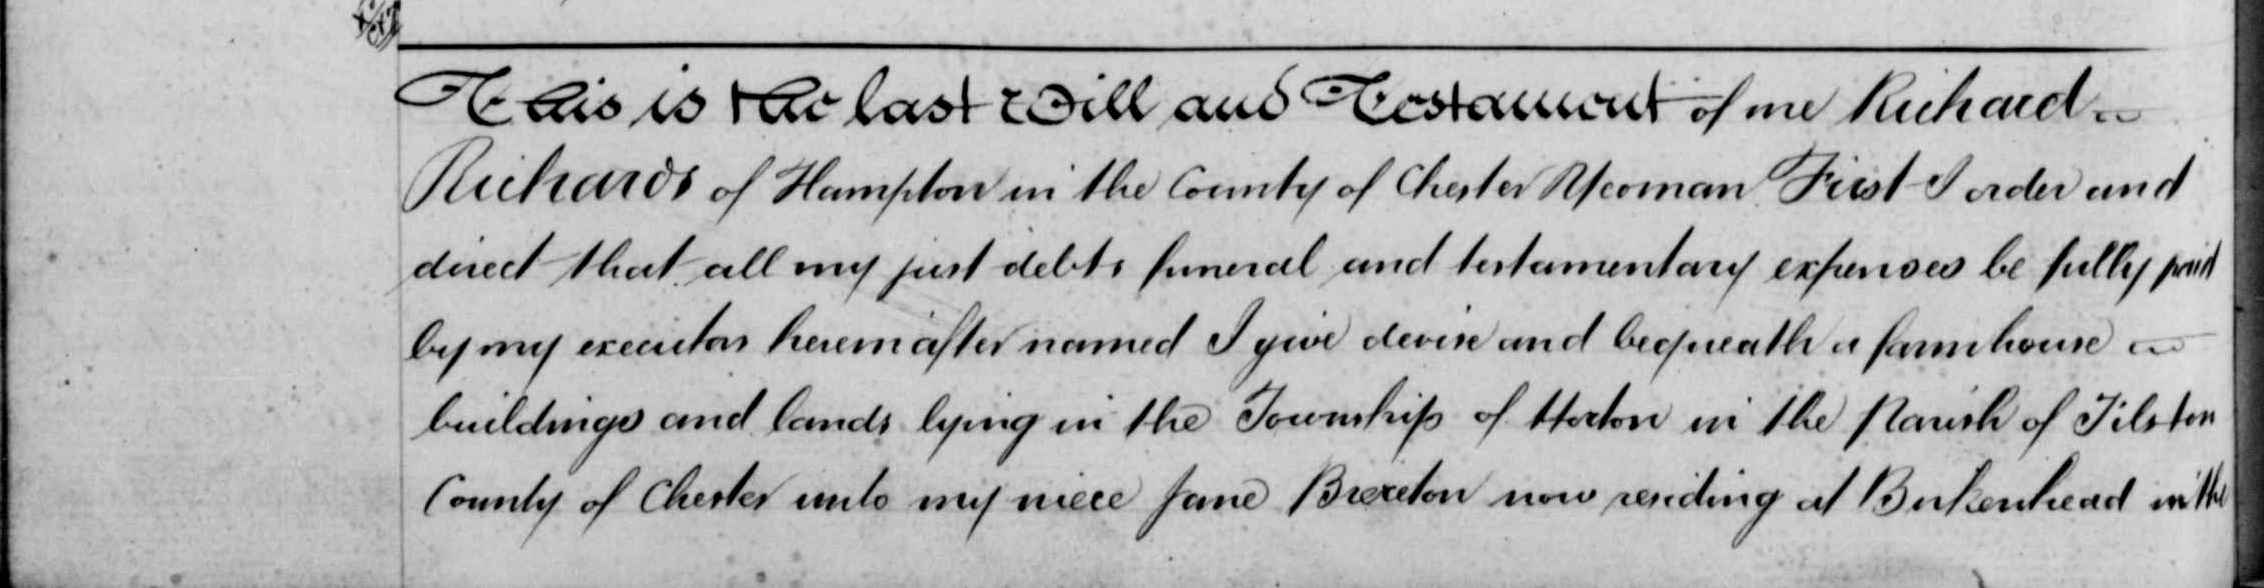 This is the last Will and Testament of me Richard
Richards of Hampton in the County of Chester Yeoman First I order and
direct that all my just debts funeral and testamentary expenses be fully paid
by my executors hereinafter named I give devise and bequeath a farmhouse
buildings and lands lying in the Township of Horton in the Parish of Tilston
County of Chester unto my niece Jane Brereton now residing at Birkenhead in the